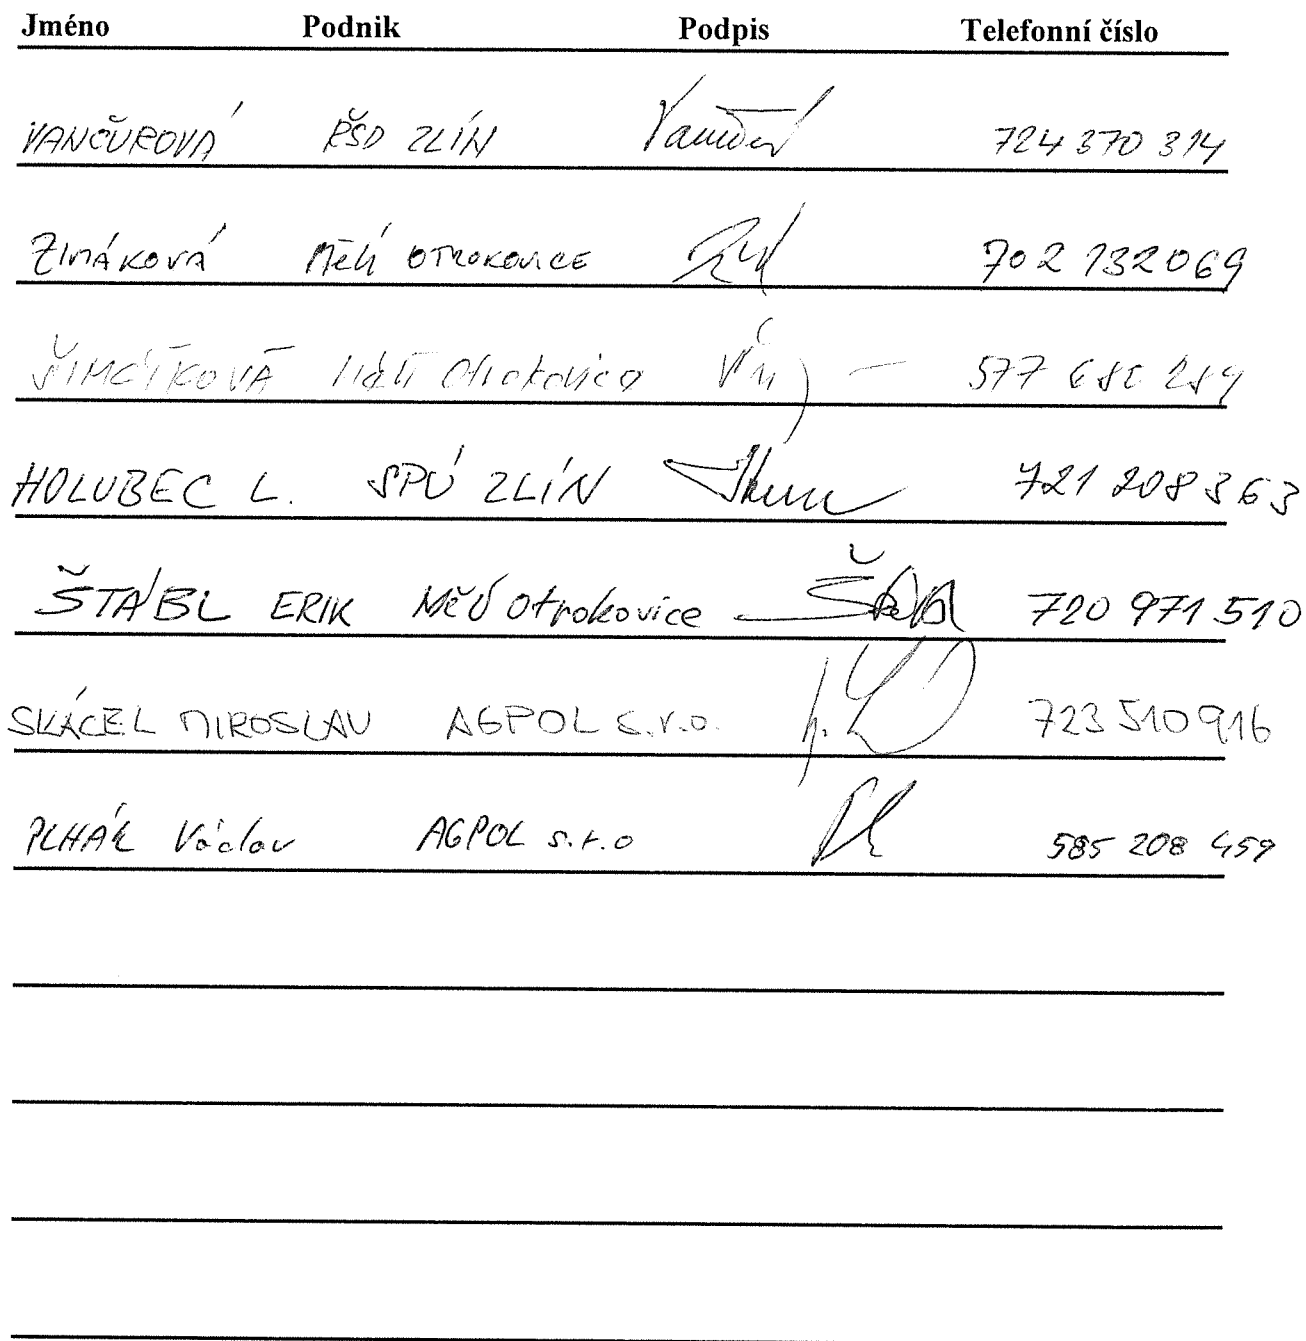 Jméno Podnik Podpis Telefonní číslo
VANČUROVÁ ŘSD ZLÍN 724 370 314
ZIMÁKOVÁ MěÚ OTROKOVICE 702 132 069
ŠIMČÍKOVÁ MěÚ Otrokovice 577 680 284
HOLUBEC L. SPÚ ZLÍN 721 208 363
ŠTÁBL ERIK MěÚ Otrokovice 720 971 510
SKÁCEL MIROSLAV AGPOL s.r.o. 723 510 916
PLHÁK Václav AGPOL s.r.o 585 208 459